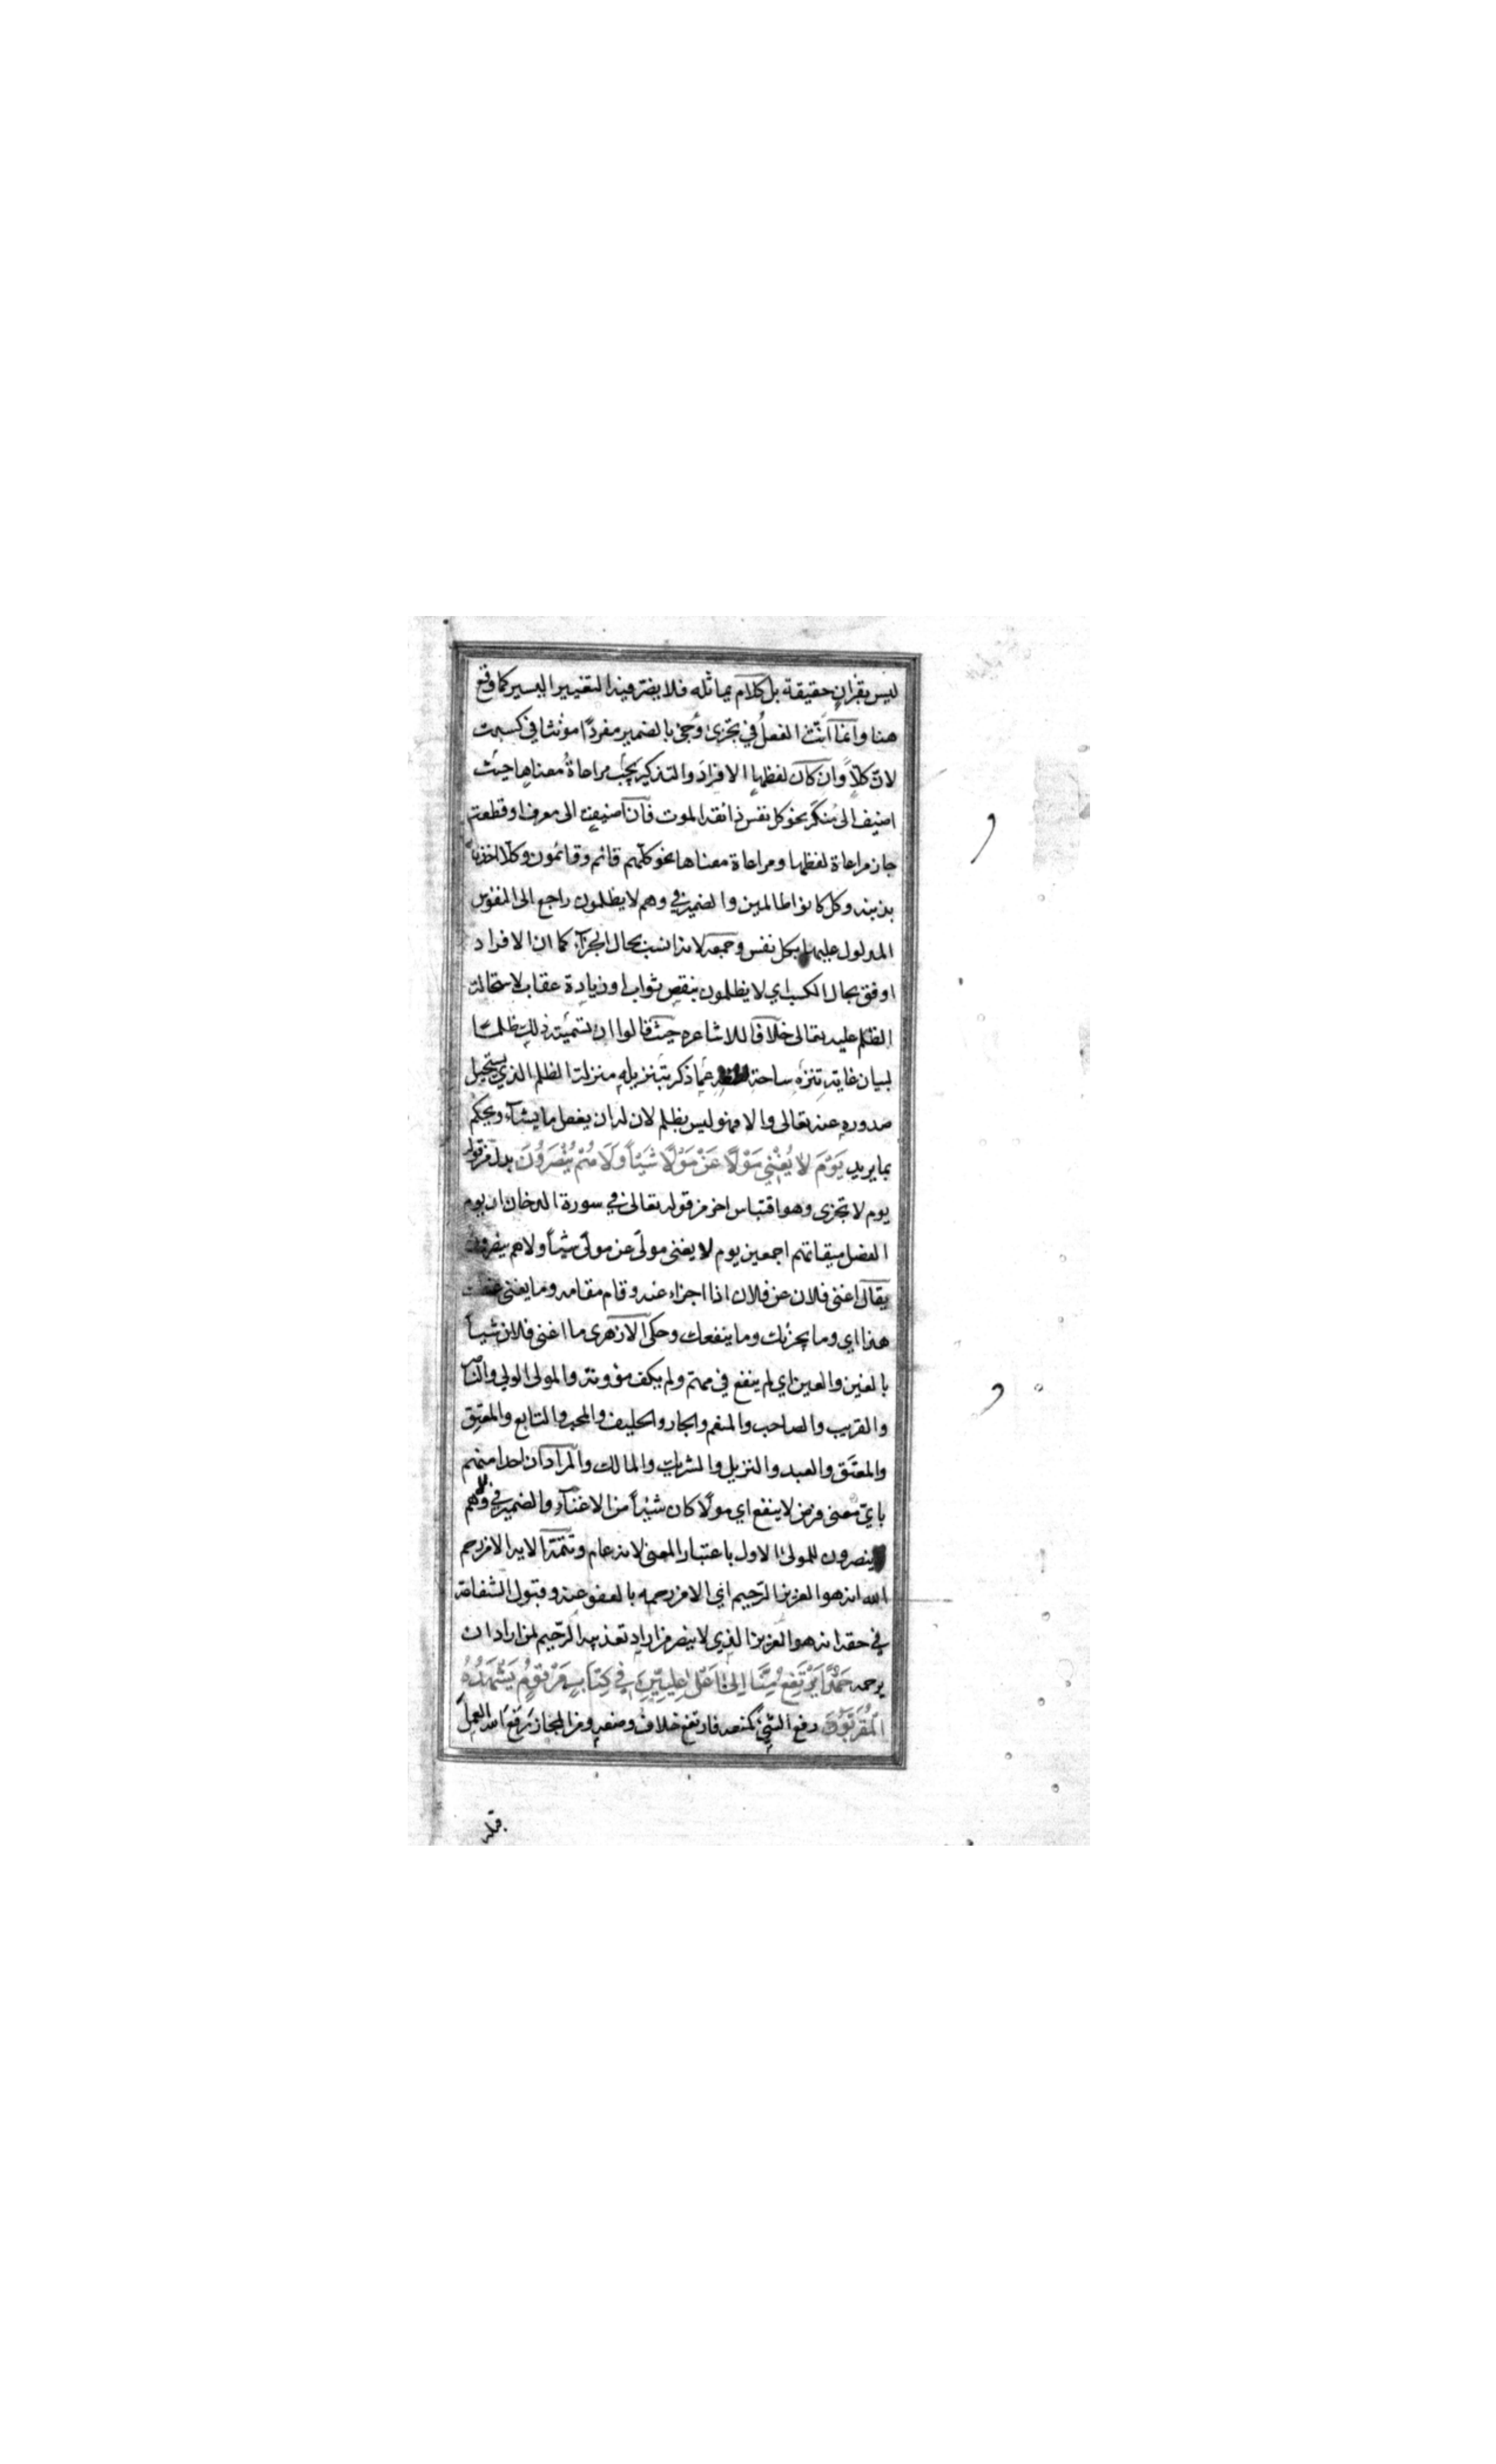 ليس بقرانٍ حقيقة بل كلام يماثله فلا يضر فيه التغيير اليسير كما وقع
هنا وانما انّث الفعلُ في تجزى وجئ بالضمير مفردًا مونثا في كسبت
لان كلاً وان كان لفظها الافراد والتذكير يجب مراعاةُ معناها حيث
اضيف الى مُنكّر نحو كل نفس ذائقة الموت فان اضيفت الى معرف او قطعت
جاز مراعاة لفظها ومراعاة معناها نحو كلّهم قائم وقائمون وكلاً اخذنا
بذنبه وكل كانوا ظالمين والضمير في وهم لا يظلمون راجع الى النفوس
المدلول عليها بكل نفس وجمعه لانه انسب بحال الجزآء كما ان الافراد
اوفق بحال الكسب اي لا يظلمون بنقص ثواب او زيادة عقاب لاستحالة
الظلم عليه تعالى خلافًا للاشاعره حيث قالوا ان تسميّة ذلك ظلمًا
لبيان غايةِ تنزه ساحة عمّا ذكر بتنزيله منزلة الظلم الذي يستحيل
صدوره عنه تعالى والا فهو ليس بظلم لان له ان يفعل ما يشآء ويحكم
بما يريد يَوْمَ لا يُغْنِي مَوْلًا عَنْ مَوْلًا شَيْئاً وَلَا هُمْ يُنْصَرُونَ بدل من قوله
يوم لا تجزى وهو اقتباس اخر من قوله تعالى في سورة الدخان ان يوم
الفصل ميقاتهم اجمعين يوم لا يغنى مولًى عن مولًى شيئاً ولا هم ينصرون
يقال اغنى فلان عن فلان اذا اجزاء عنه وقام مقامه وما يغنى عنك
هذا اي وما يجزئك وما ينفعك وحكى الازهرى ما اغنى فلان شيئاً
بالغين والعين اي لم ينفع في مهم ولم يكف مؤونة والمولى الولي والناصر
والقريب والصاحب والمنعم والجار والحليف والمحب والتابع والمعتِق
والمعتَق والعبد والنزيل والشريك والمالك والمراد ان احدا منهم
بايّ معنى فرض لا ينفع اي مولًا كان شيئاً من الاغنآء والضمير في ولا هم
ينصرون للمولى الاول باعتبار المعنى لانه عام وتتمّة الاية الا من رحم
الله انه هو العزيز الرّحيم اي الا من رحمه بالعفو عنه وقبول الشفاعة
في حقه انه هو العزيز الذي لا ينصر من اراد تعذيبه الرّحيم لمن اراد ان
يرحمه حَمْدًا يَرْتَفِعُ مِنَّا اِلىٰ اَعْلىٰ عِلِيّينَ فِي كِتَابٍ مَرْقوُمٍ يَشْهَدُهُ
الْمُقَرَّبُونَ رفع الشيئ كمنعه فارتفع خلاف وضعه ومن المجاز رَفَعَ الله العملَ
قبله